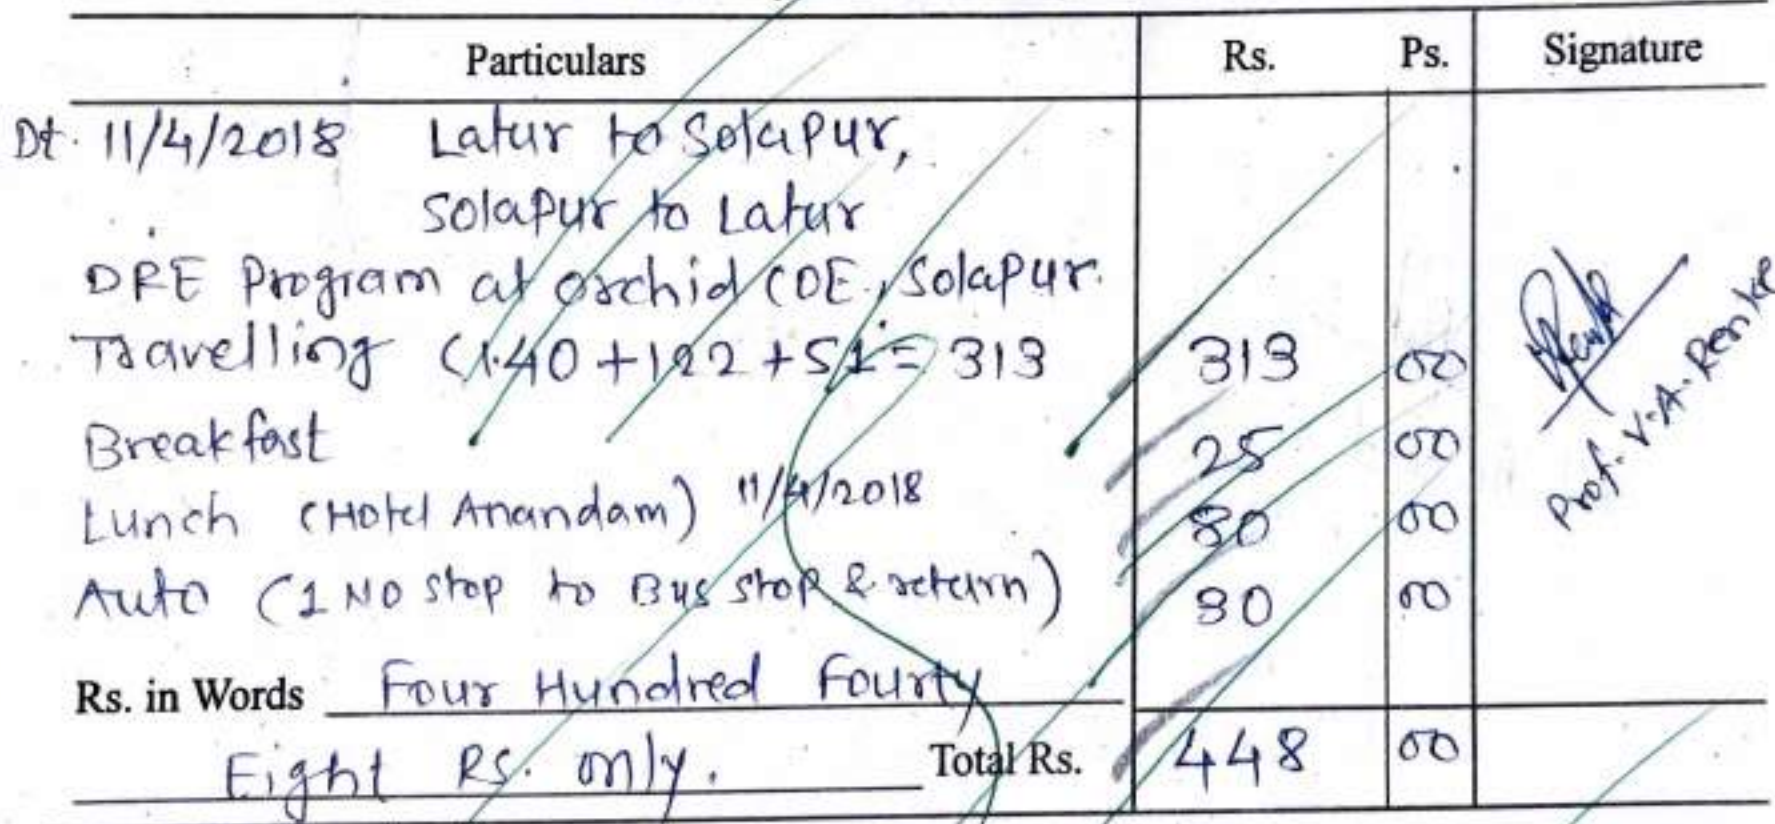 Particulars Rs. Ps. Signature
Dt. 11/4/2018 Latur to Solapur,
Solapur to Latur
DRE Program at orchid COE., Solapur.
Travelling (140+122+51= 313 313 00
Breakfast 25 00
Lunch (Hotel Anandam) 11/4/2018 80 00
Auto (1 No stop to Bus stop & return) 30 00
Prof. V.A. Renke
Rs. in Words Four Hundred Fourty
Eight Rs. only. Total Rs. 448 00